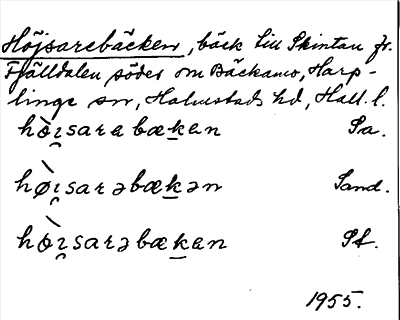 Höjsarebäcken, bäck till Skintan fr.
Fjälldalen söder om Bäckamo, Harp-
linge sn, Halmstads hd, Hall. l.
hò̠ɪ̯sarabæk̠an Sa.
hø̀ɪ̯sarəbæk̠ən Sand.
hò̠ɪ̯sarəbæk̠an St.
1955.